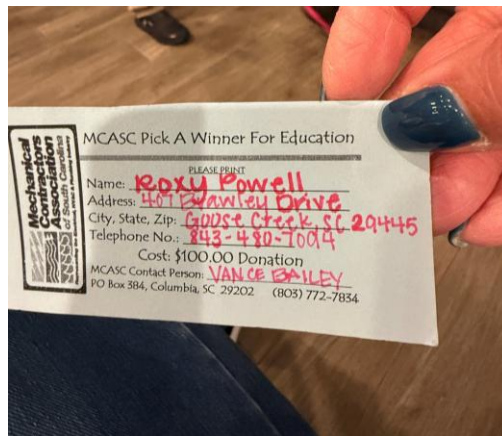 Mechanical
Contractors
Association
of South Carolina
MCASC Pick A Winner For Education
PLEASE PRINT
Name: Roxy Powell
Address: 401 Brawley Drive
City, State, Zip: Goose Creek, SC 29445
Telephone No.: 843-480-7094
Cost: $100.00 Donation
MCASC Contact Person: VANCE BAILEY
PO Box 384, Columbia, SC 29202 (803) 772-7834